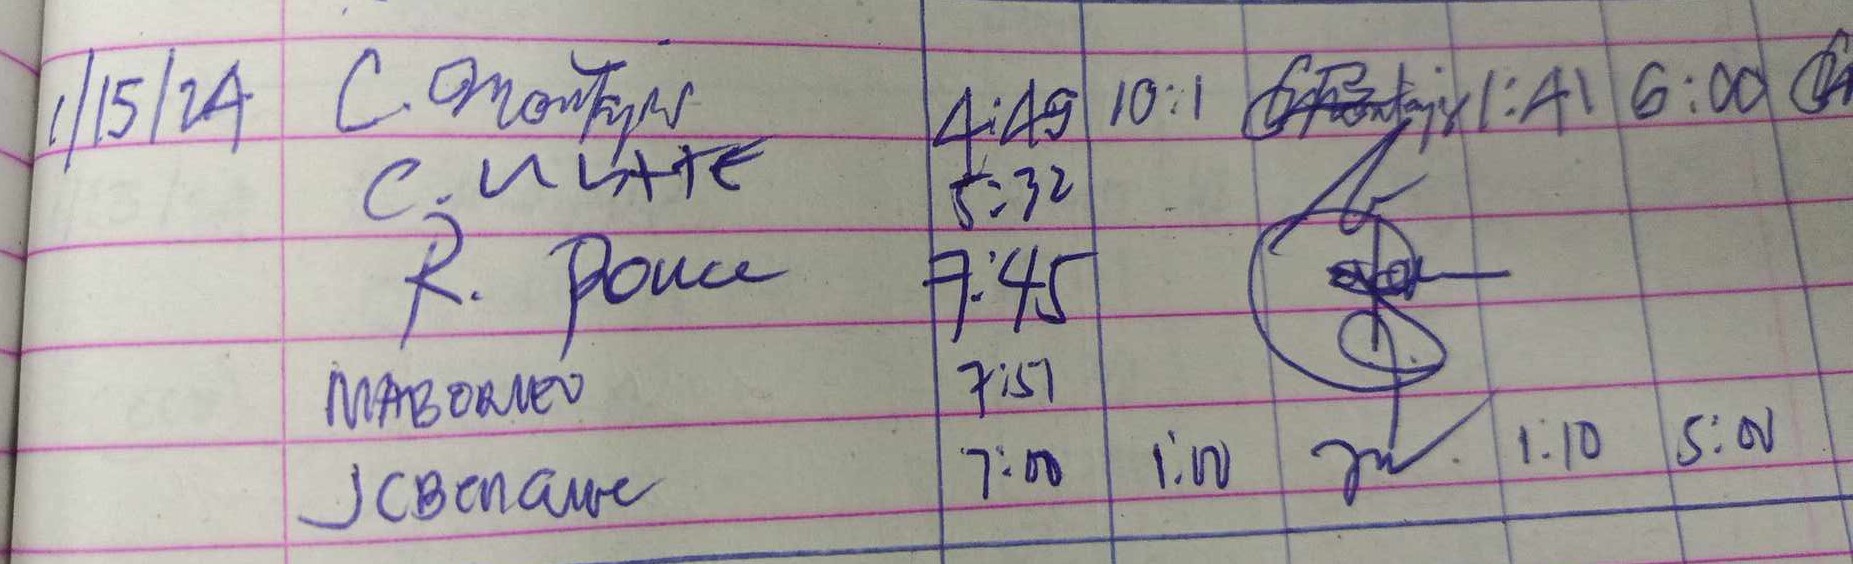 1/15/24 C. Montejo 4:49 10:1 1:41 6:00
C. ULATE 5:32
R. Ponce 7:45
MABORNEO 7:51
JCBenawe 7:00 1:00 1:10 5:00